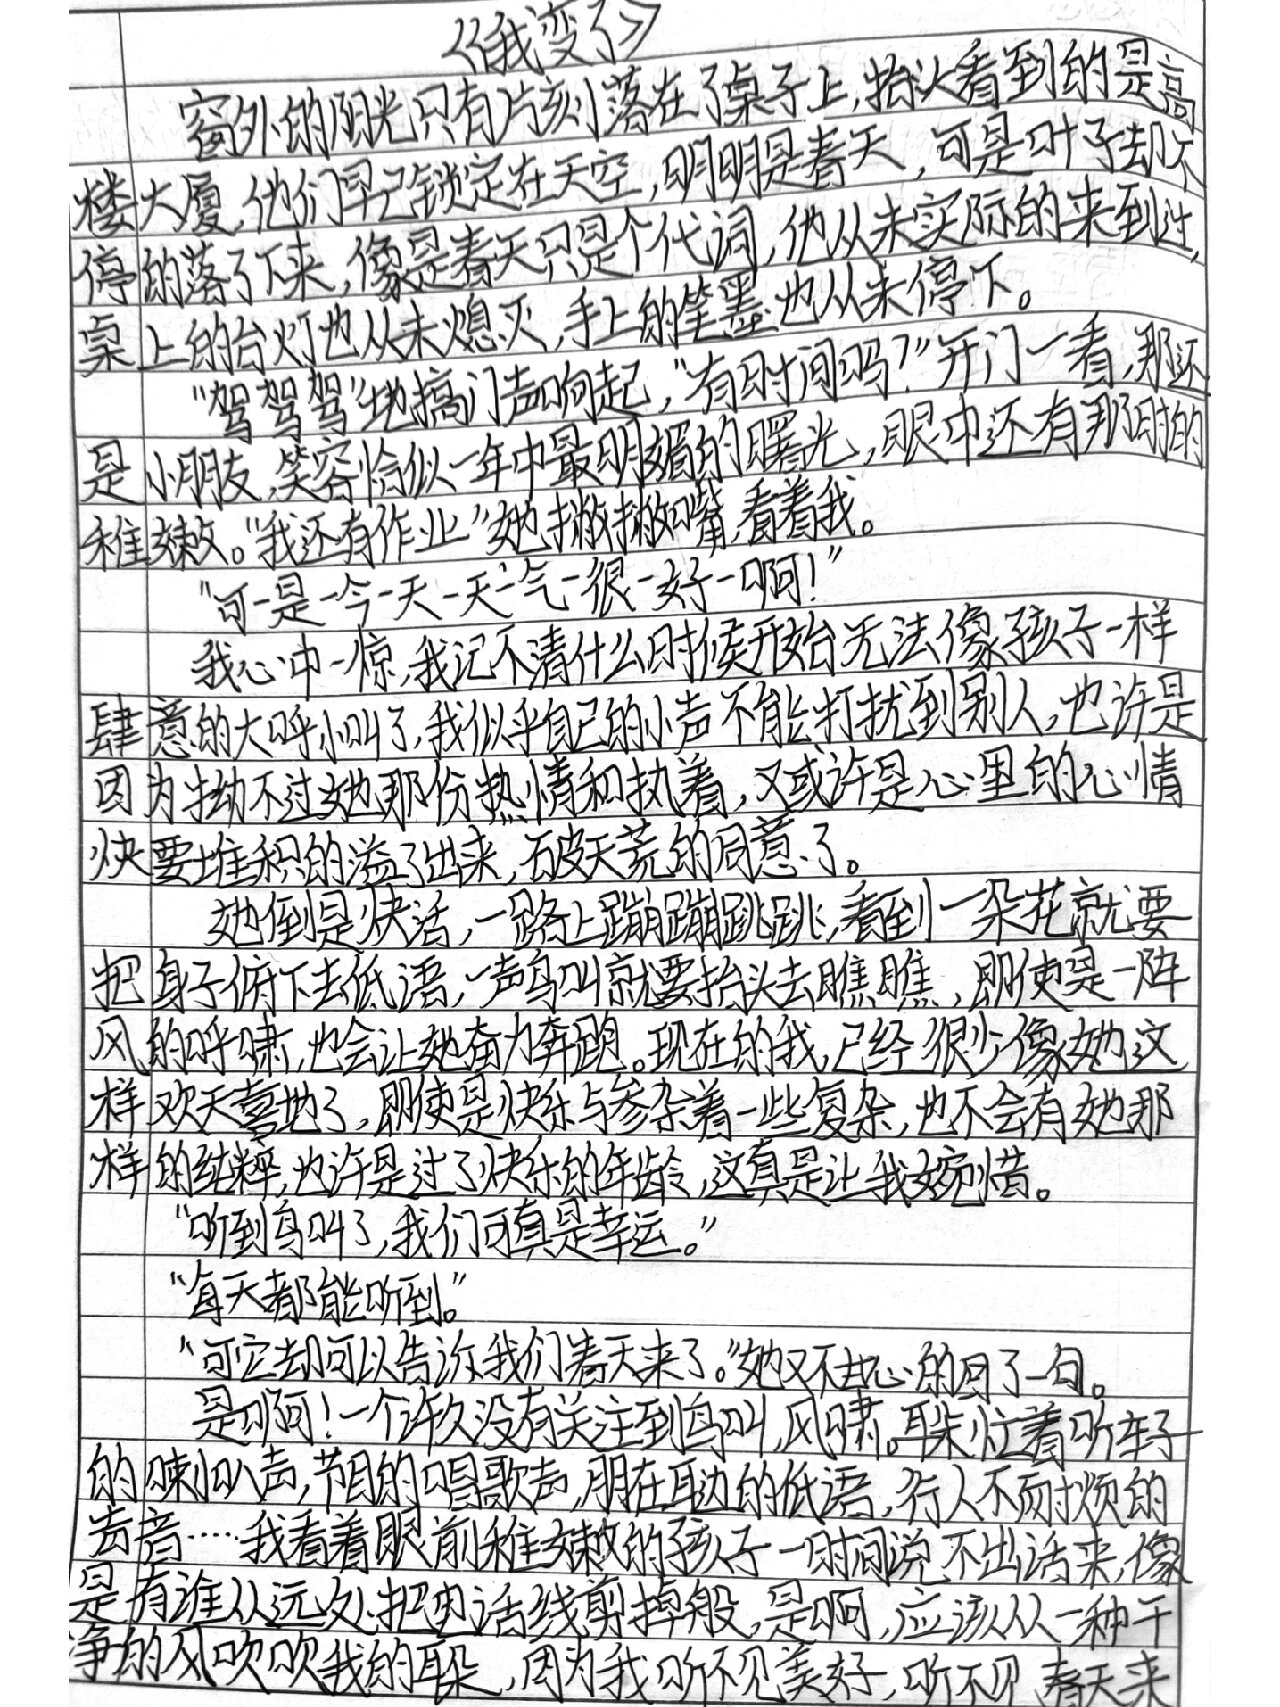 《我变了》
窗外的阳光只有片刻落在了桌子上,抬头看到的是高
楼大厦,他们早已锁定在天空,明明是春天,可是叶子却不
停的落了下来,像是春天只是个代词,他从未实际的来到过,
桌上的台灯也从未熄灭,手上的笔墨也从未停下。
“驾驾驾”地搞门声响起,“有时间吗?”开门一看,那还
是小朋友,笑容恰似一年中最明媚的曙光,眼中还有那时的
稚嫩。“我还有作业”她撇撇嘴,看着我。
“可-是-今-天-天-气-很-好-啊!”
我心中一惊,我记不清什么时候开始无法像孩子一样
肆意的大呼小叫了,我似乎自己的小声不能打扰到别人,也许是
因为拗不过她那份热情和执着,又或许是心里的心情
快要堆积的溢了出来,破天荒的同意了。
她倒是快活,一路上蹦蹦跳跳,看到一朵花就要
把身子俯下去低语,一声鸟叫就要抬头去瞧瞧,即使是一阵
风的呼啸,也会让她奋力奔跑。现在的我,已经很少像她这
样欢天喜地了,即使是快乐与参杂着一些复杂,也不会有她那
样的纯粹,也许是过了快乐的年龄,这真是让我婉惜。
“听到鸟叫了,我们可真是幸运。”
“每天都能听到。”
“可它却可以告诉我们春天来了。”她又不甘心的回了一句。
是啊!一个许久没有关注到鸟叫,风啸。耳朵忙着听车子
的喇叭声,节目的唱歌声,朋在耳边的低语,行人不耐烦的
声音……我看着眼前稚嫩的孩子一时间说不出话来,像
是有谁从远处把电话线剪掉般,是啊,应该从一种干
净的风吹吹我的耳朵,因为我听不见美好,听不见春天来